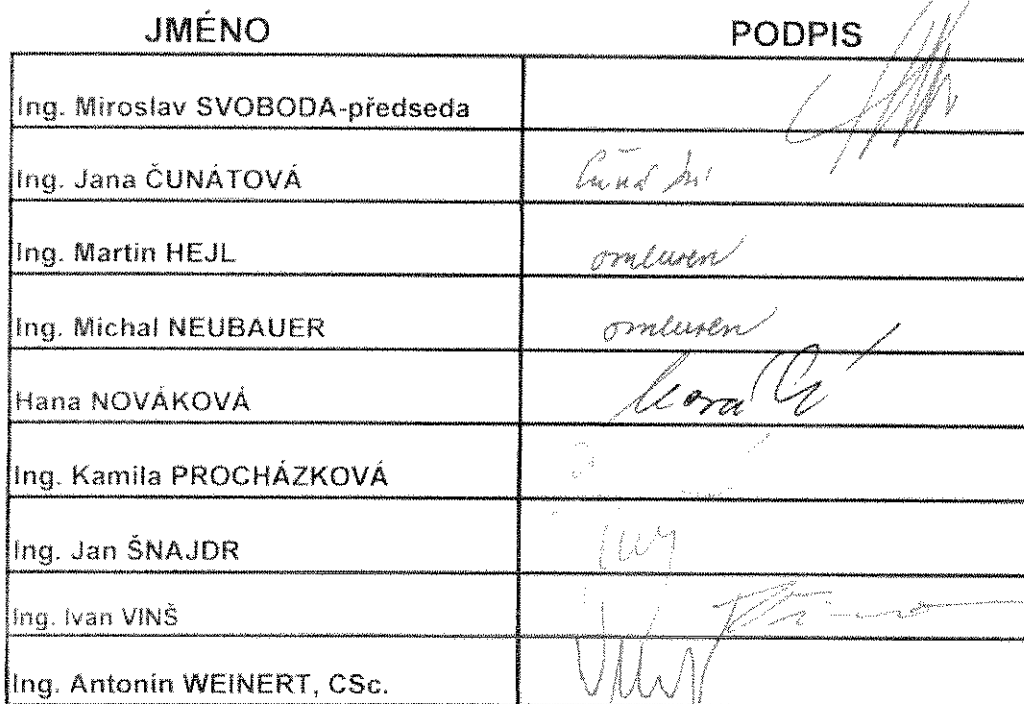 JMÉNO PODPIS
Ing. Miroslav SVOBODA-předseda
Ing. Jana ČUNÁTOVÁ
Ing. Martin HEJL omluven
Ing. Michal NEUBAUER omluven
Hana NOVÁKOVÁ
Ing. Kamila PROCHÁZKOVÁ
Ing. Jan ŠNAJDR
Ing. Ivan VINŠ
Ing. Antonín WEINERT, CSc.